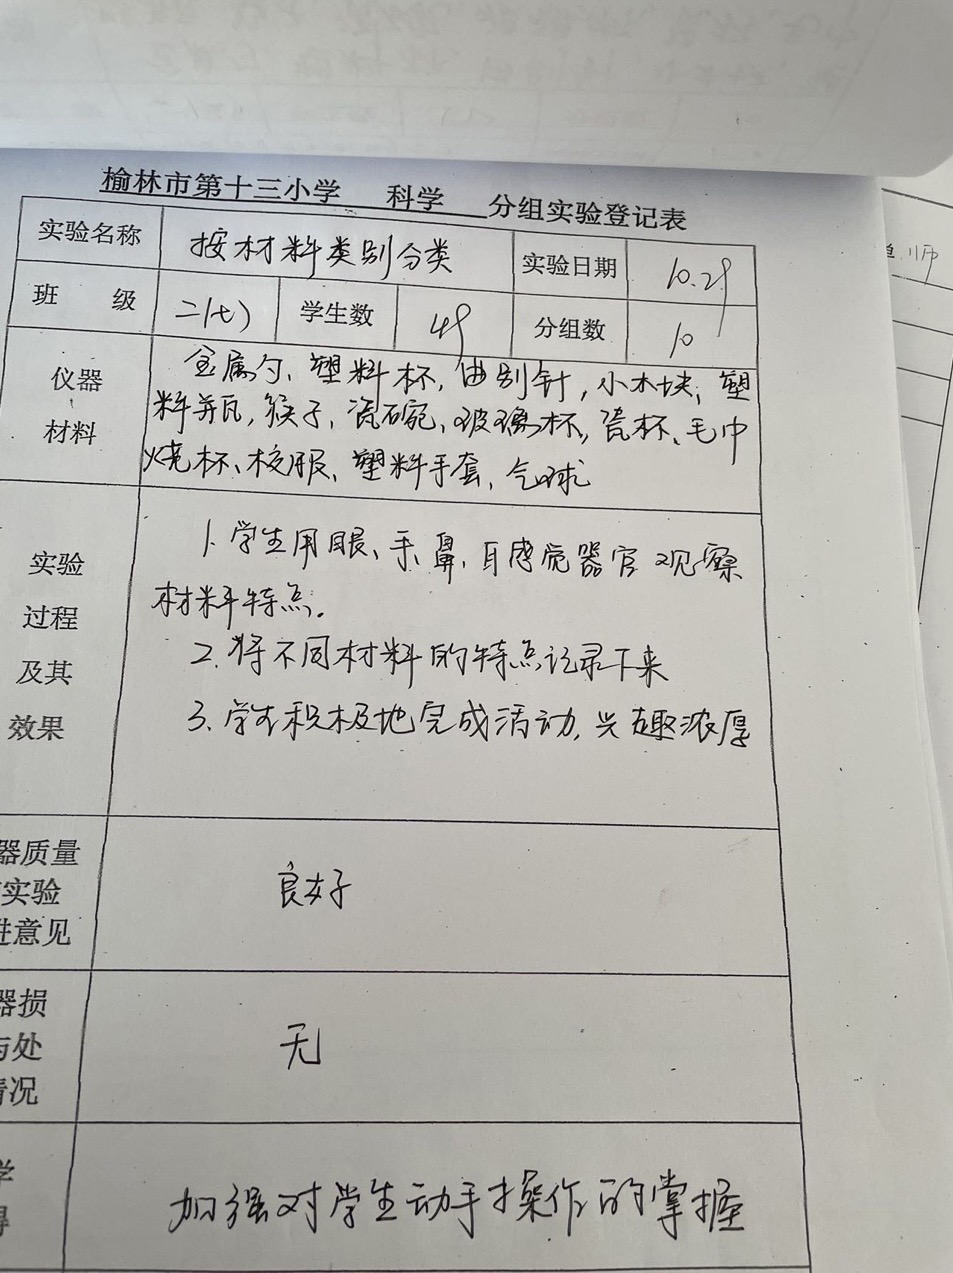 榆林市第十三小学 科学 分组实验登记表
实验名称 按材料类别分类 实验日期 10.29
班 级 二(七) 学生数 49 分组数 10
仪器
材料
金属勺、塑料杯,曲别针,小木块,塑
料并瓦,筷子,瓷碗,玻璃杯,瓷杯、毛巾
烧杯、校服、塑料手套、气球
实验
过程
及其
效果
1.学生用眼、手、鼻,耳感觉器官观察
材料特点.
2.将不同材料的特点记录下来
3.学生积极地完成活动,兴趣浓厚
器质量
实验
进意见
良好
器损
与处
情况
无
学
得
加强对学生动手操作的掌握